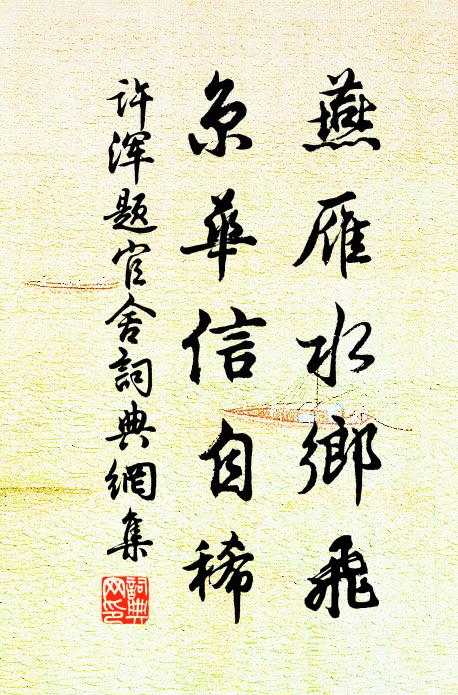 燕雁水鄉飛
京華信自稀
许浑题官舍詞典網集
詞典网印